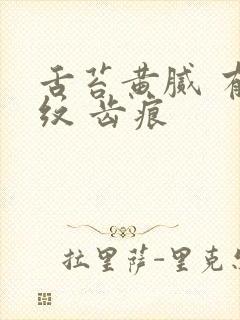 舌苔黄腻
纹 齿痕
拉里萨-里克